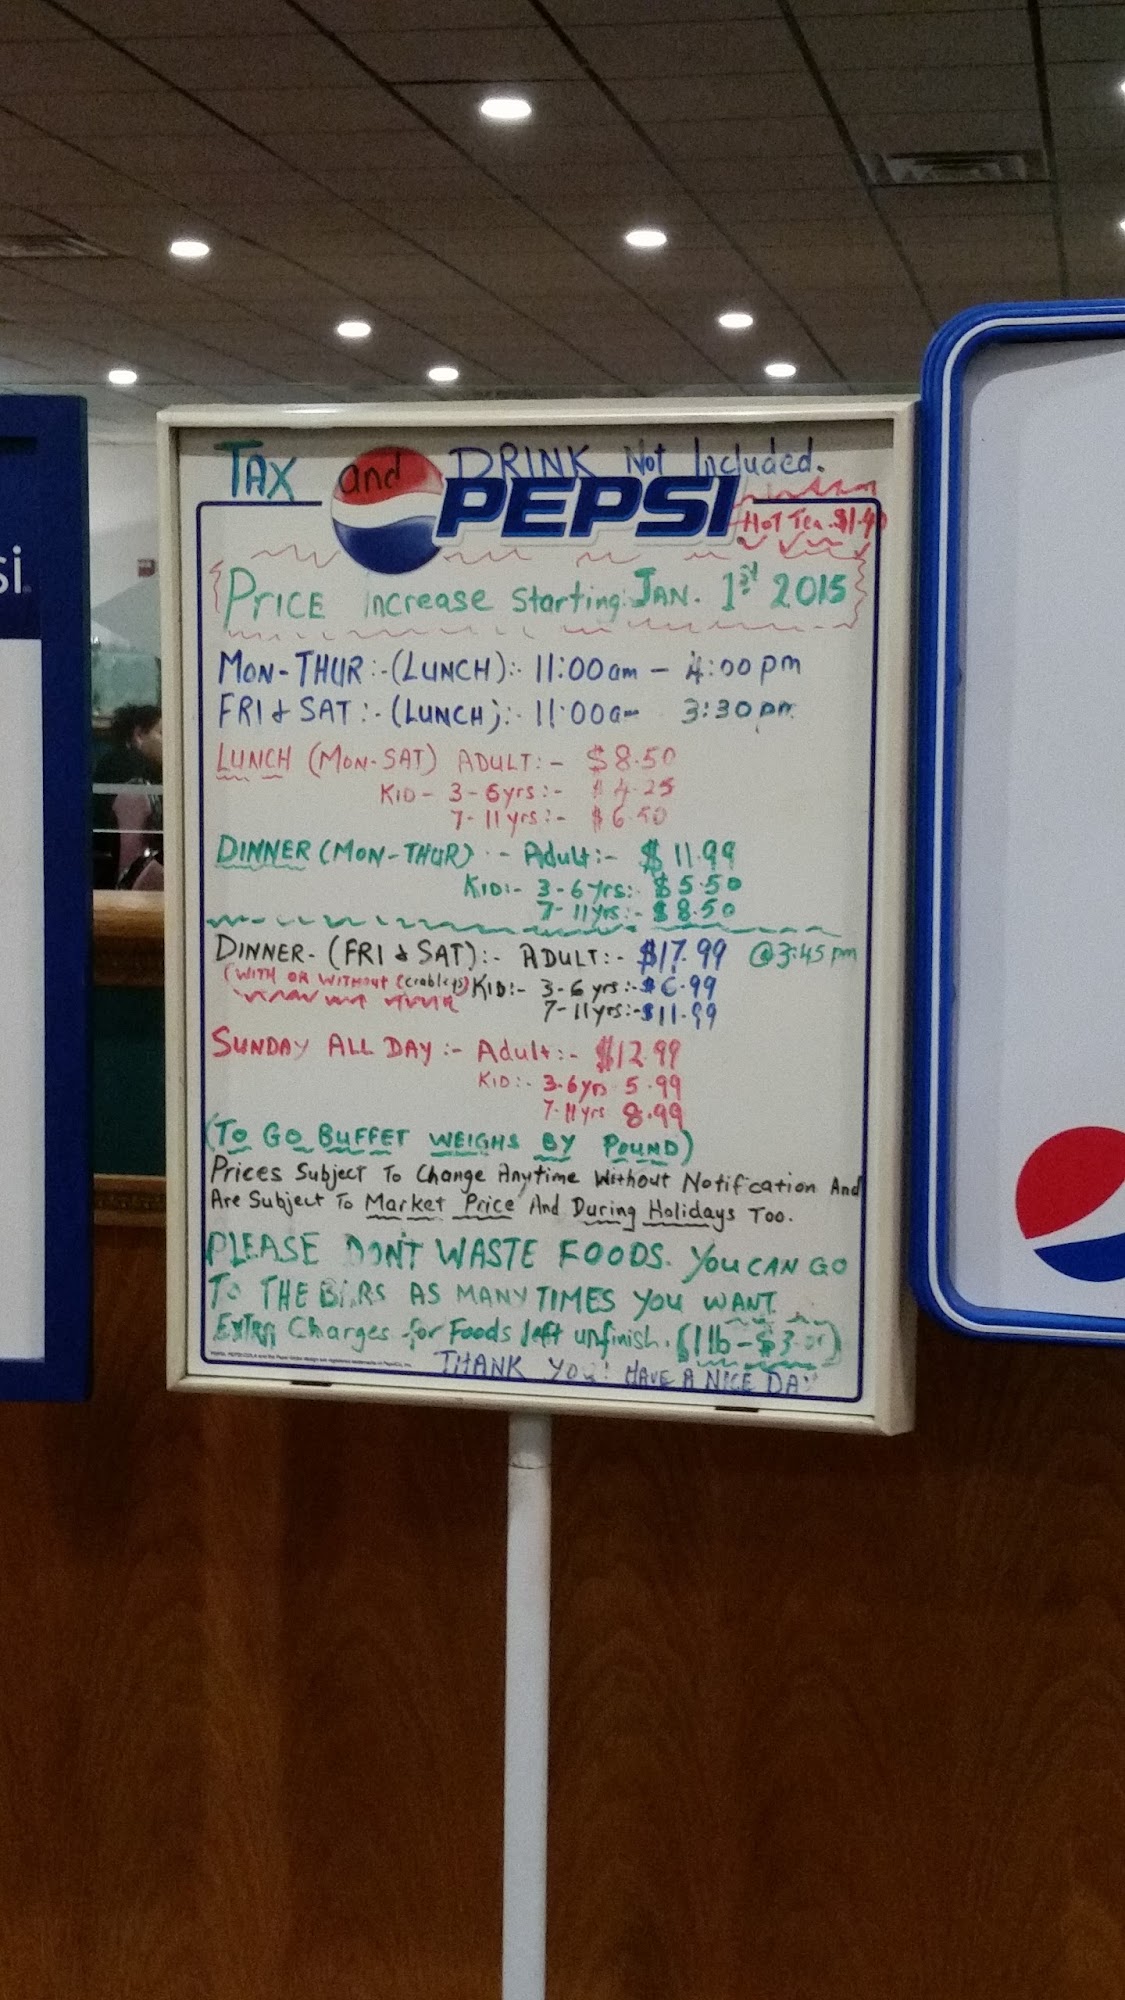 TAX and DRINK Not Included.
PEPSI
HOT Tea $1.40
PRICE increase starting: JAN. 1st 2015
MON-THUR:-(LUNCH):- 11:00am - 4:00pm
FRI & SAT:-(LUNCH):- 11:00am 3:30pm
LUNCH (MON-SAT) ADULT:- $8.50
KID- 3-6yrs:- $4.25
7-11yrs:- $6.50
DINNER (MON-THUR) - Adult:- $11.99
KID:- 3-6yrs:- $5.50
7-11yrs:- $8.50
DINNER-(FRI & SAT):- ADULT:- $17.99 @3:45pm
(WITH OR WITHOUT (crablegs) KID:- 3-6yrs:- $6.99
7-11yrs:-$11.99
SUNDAY ALL DAY:- Adult:- $12.99
KID:- 3-6yrs 5.99
7-11yrs 8.99
(TO GO BUFFET WEIGHS BY POUND)
Prices Subject To Change Anytime Without Notification And
Are Subject To Market Price And During Holidays Too.
PLEASE DON'T WASTE FOODS. YOU CAN GO
TO THE BARS AS MANY TIMES YOU WANT.
EXTRA Charges for Foods left unfinish. (1lb-$3.or)
THANK YOU! HAVE A NICE DAY
si